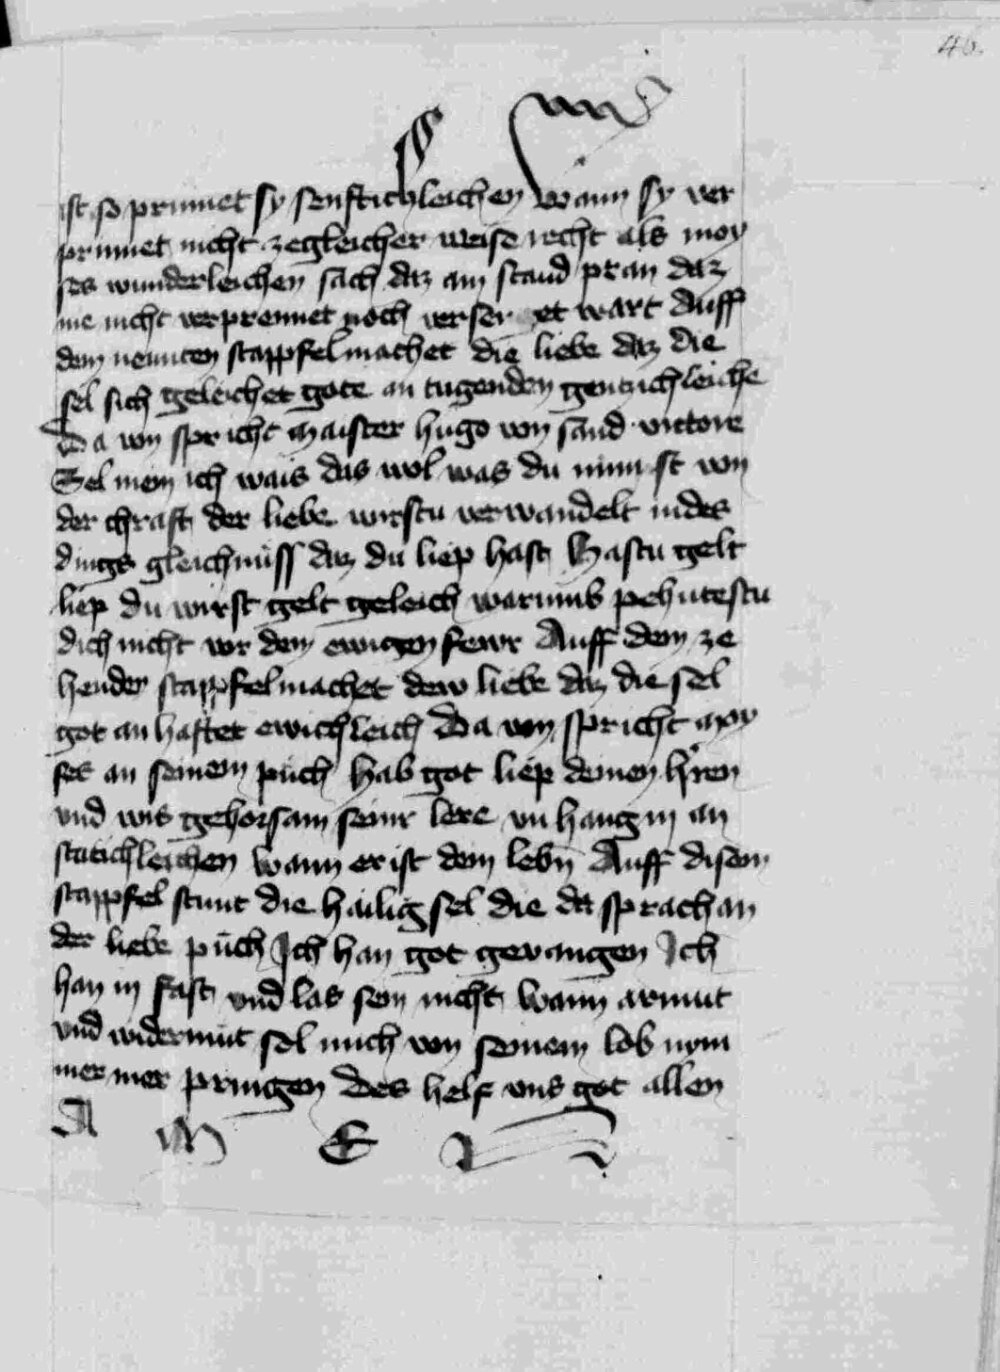 46.
ist so prinnet sy senftichleichen Wann sy ver
prinnet nicht zegleicher weise recht als moy
ses wunderleichen sach daz ain staud pran daz
nie nicht verprennet noch verser et wart Auff
dem neunten stappfel machet die liebe daz die
sel sich geleichet gote an tugenden gentzichleiche
Da von spricht maister hugo von sand victore
Sel mein ich wais das wol was du nimst von
der chraft der liebe wirstu verwandelt in des
dings gleichnüss daz du liep hast Hastu gelt
liep du wirst gelt geleich warumb pehutestu
dich nicht vor dem ewigen fewr Auff dem ze
henden stappfel machet dew liebe daz die sel
got an haftet ewichleich Da von spricht moy
ses an seinem püch Hab got liep deinen hren
vnd wis gehorsam seinr lere vn hang in an
stätichleichen Wann er ist dein lebn Auff disem
stappfel stunt die hailig sel die da sprach an
der liebe püch Ich han got gevangen Ich
han in fast vnd las sein nicht Wann armut
vnd widermüt sol mich von seinem lob nym
mer mer pringen Des helf vns got allen
A M E N